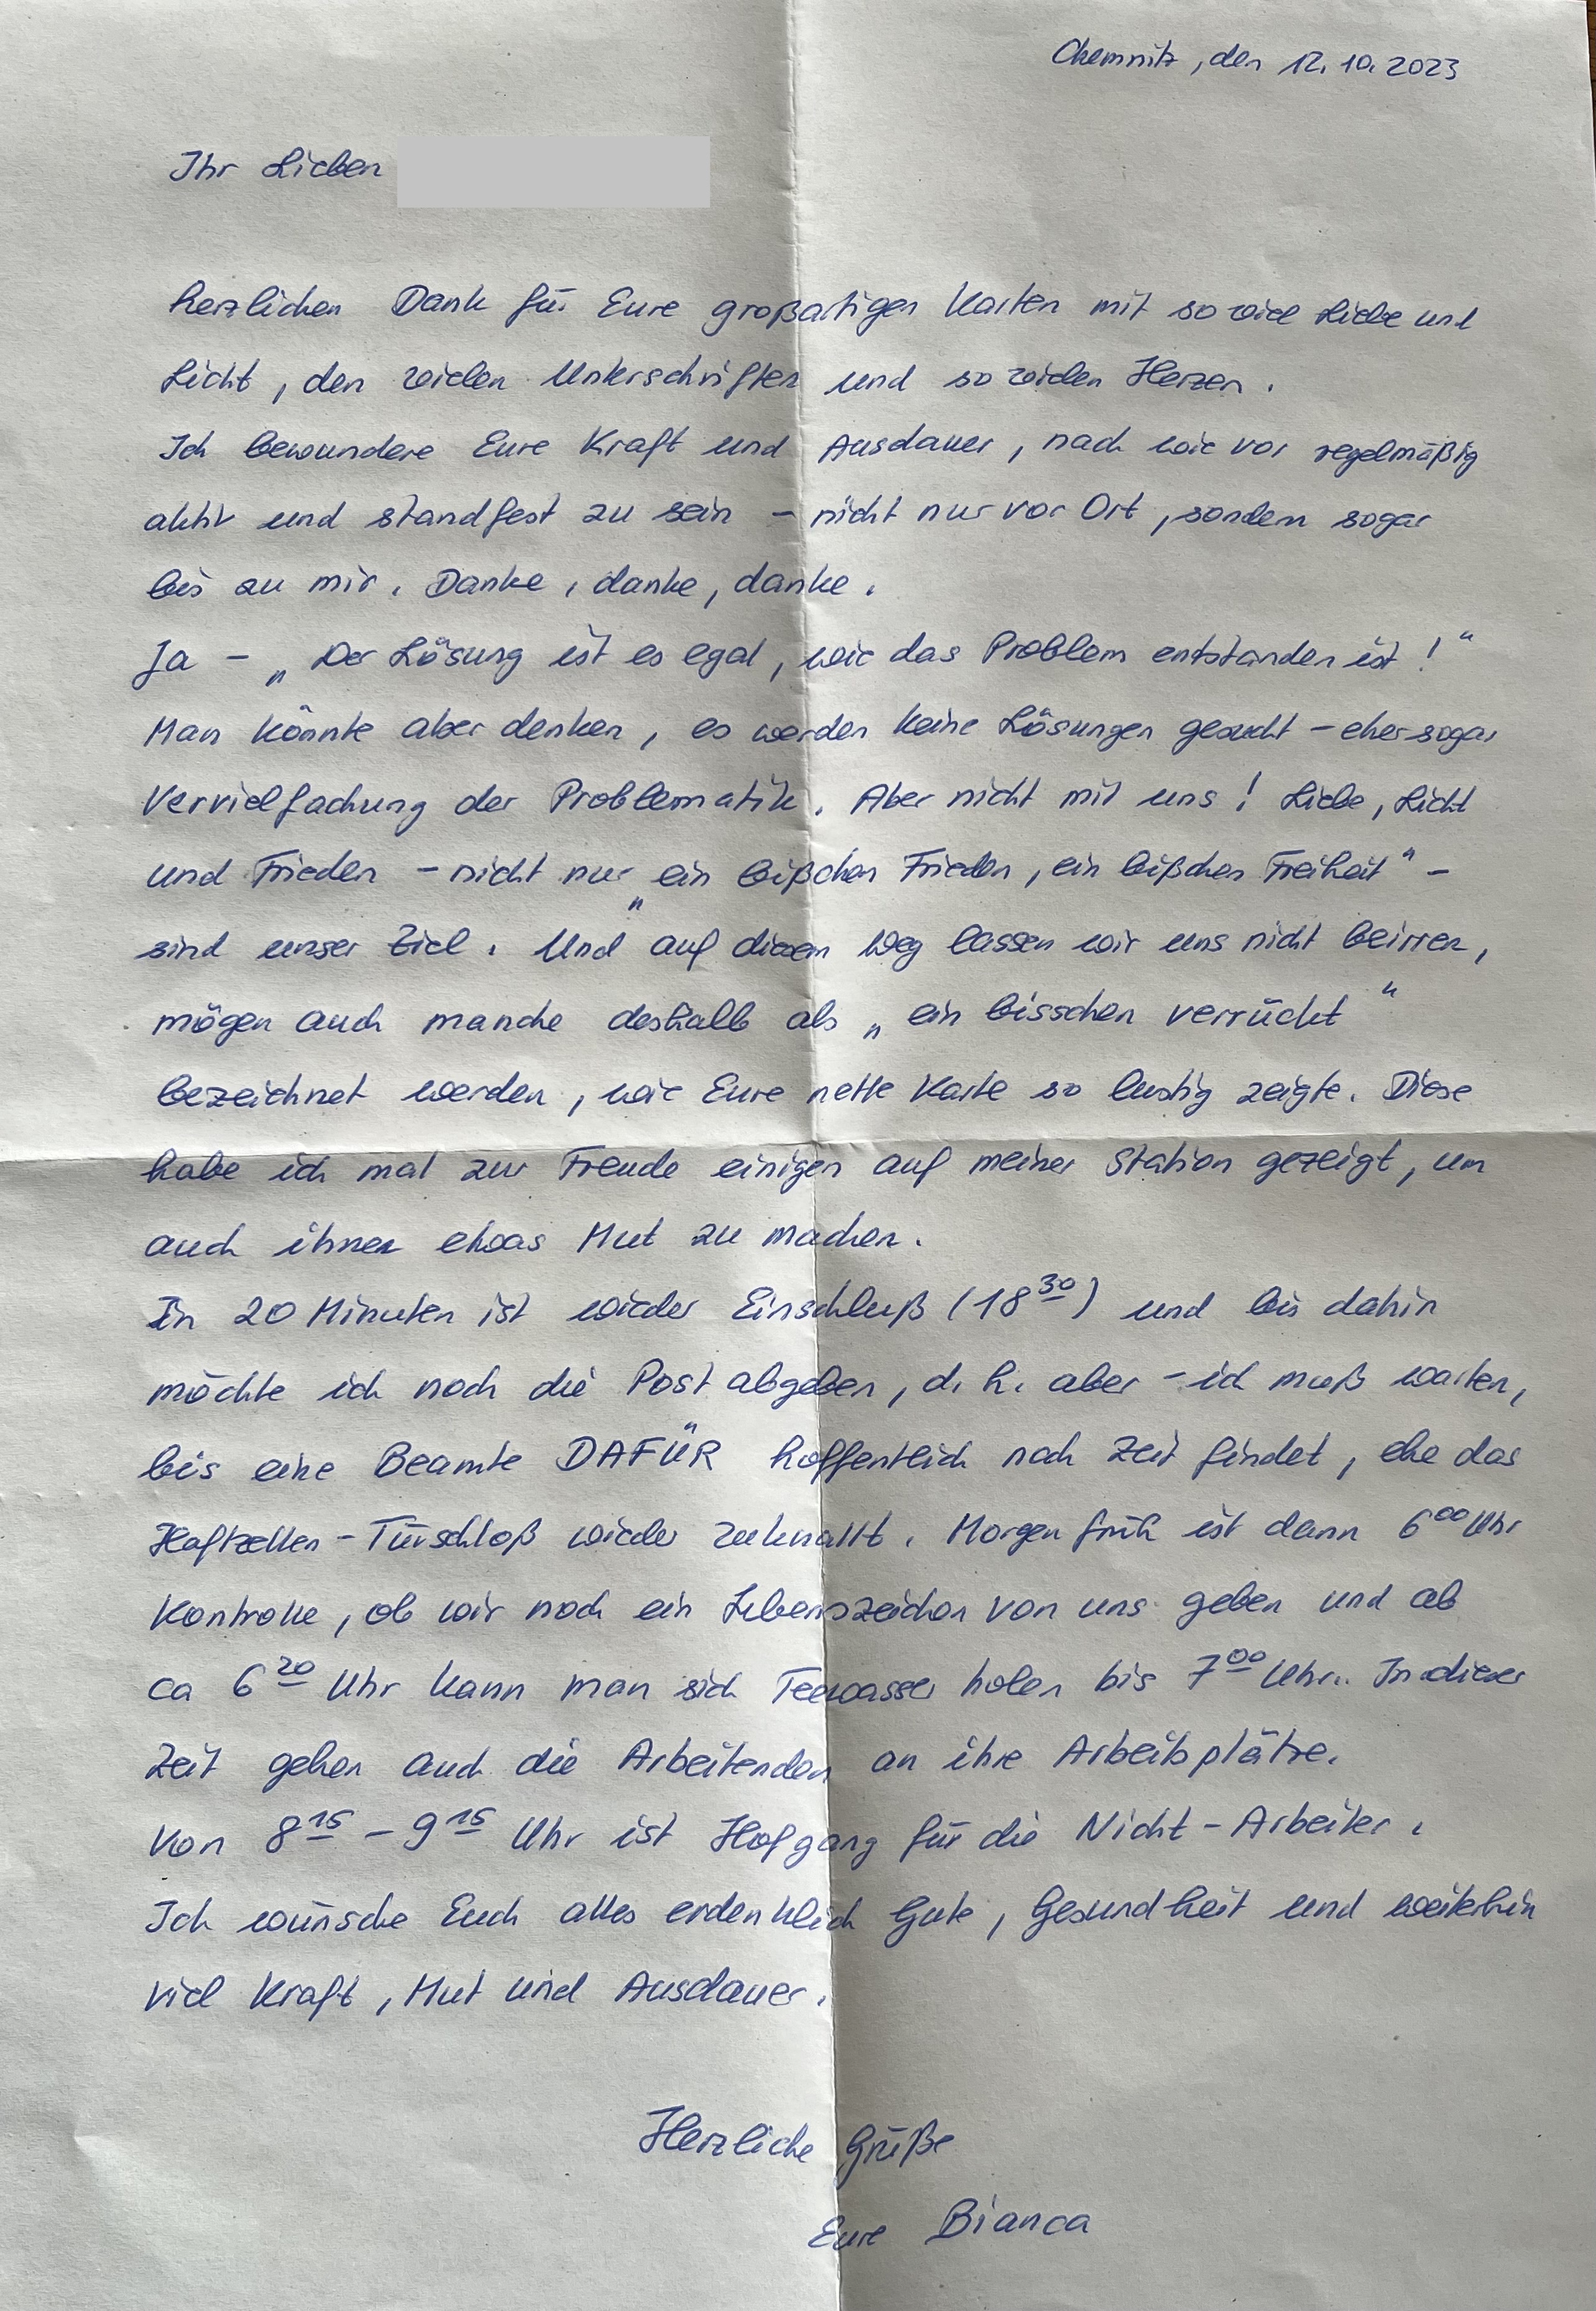 Chemnitz, den 12.10.2023
Ihr Lieben
herzlichen Dank für Eure großartigen Karten mit so viel Liebe und
Licht, den vielen Unterschriften und so vielen Herzen.
Ich bewundere Eure Kraft und Ausdauer, nach wie vor regelmäßig
aktiv und standfest zu sein – nicht nur vor Ort, sondern sogar
bis zu mir. Danke, danke, danke.
Ja – „Der Lösung ist es egal, wie das Problem entstanden ist!"
Man könnte aber denken, es werden keine Lösungen gesucht – eher sogar
Vervielfachung der Problematik. Aber nicht mit uns! Liebe, Licht
und Frieden – nicht nur „ein bißchen Frieden, ein bißchen Freiheit" –
sind unser Ziel. Und auf diesem Weg lassen wir uns nicht beirren,
mögen auch manche deshalb als „ein bisschen verrückt"
bezeichnet werden, wie Eure nette Karte so lustig zeigte. Diese
habe ich mal zur Freude einigen auf meiner Station gezeigt, um
auch ihnen etwas Mut zu machen.
In 20 Minuten ist wieder Einschluß (18³⁰) und bis dahin
möchte ich noch die Post abgeben, d. h. aber – ich muß warten,
bis eine Beamte DAFÜR hoffentlich noch Zeit findet, ehe das
Haftzellen-Türschloß wieder zuknallt. Morgen früh ist dann 6⁰⁰ Uhr
Kontrolle, ob wir noch ein Lebenszeichen von uns geben und ab
ca 6²⁰ Uhr kann man sich Teewasser holen bis 7⁰⁰ Uhr. In dieser
Zeit gehen auch die Arbeitenden an ihre Arbeitsplätze.
Von 8¹⁵ – 9¹⁵ Uhr ist Hofgang für die Nicht-Arbeiter.
Ich wünsche Euch alles erdenklich Gute, Gesundheit und weiterhin
viel Kraft, Mut und Ausdauer.
Herzliche Grüße
Eure Bianca